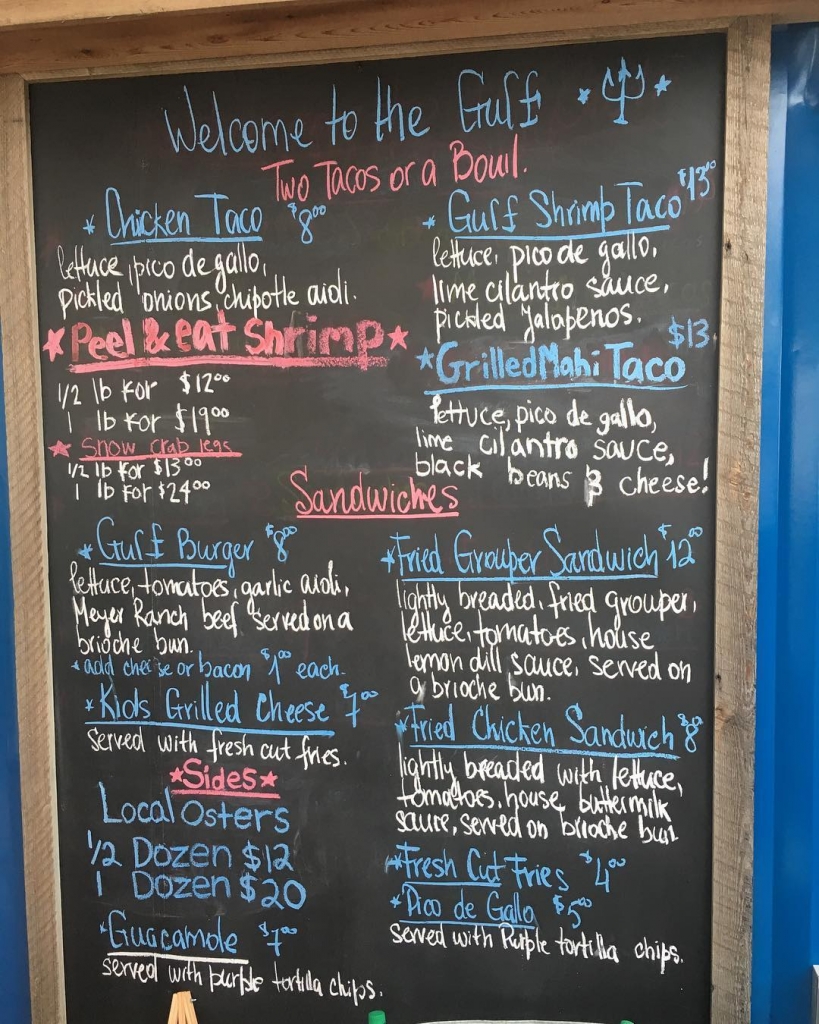 Welcome to the Gulf
Two Tacos or a Bowl.
* Chicken Taco $8.00
lettuce, pico de gallo,
pickled onions, chipotle aioli.
Peel & eat Shrimp
1/2 lb for $12.00
1 lb for $19.00
Snow crab legs
1/2 lb for $13.00
1 lb for $24.00
* Gulf Shrimp Taco $13.00
lettuce, pico de gallo,
lime cilantro sauce,
pickled Jalapenos.
$13.
*Grilled Mahi Taco
lettuce, pico de gallo,
lime cilantro sauce,
black beans & cheese!
Sandwiches
* Gulf Burger $8.00
lettuce, tomatoes, garlic aioli,
Meyer Ranch beef served on a
brioche bun.
* add cheese or bacon $1.00 each.
* Kids Grilled Cheese $7.00
served with fresh cut fries.
*Fried Grouper Sandwich $12.00
lightly breaded, fried grouper,
lettuce, tomatoes, house
lemon dill sauce, served on
a brioche bun.
*Fried Chicken Sandwich $8.00
lightly breaded with lettuce,
tomatoes, house, buttermilk
sauce, served on brioche bun
Sides
Local Osters
1/2 Dozen $12
1 Dozen $20
*Guacamole $7.00
served with purple tortilla chips.
*Fresh Cut Fries $4.00
*Pico de Gallo $5.00
served with Purple tortilla chips.